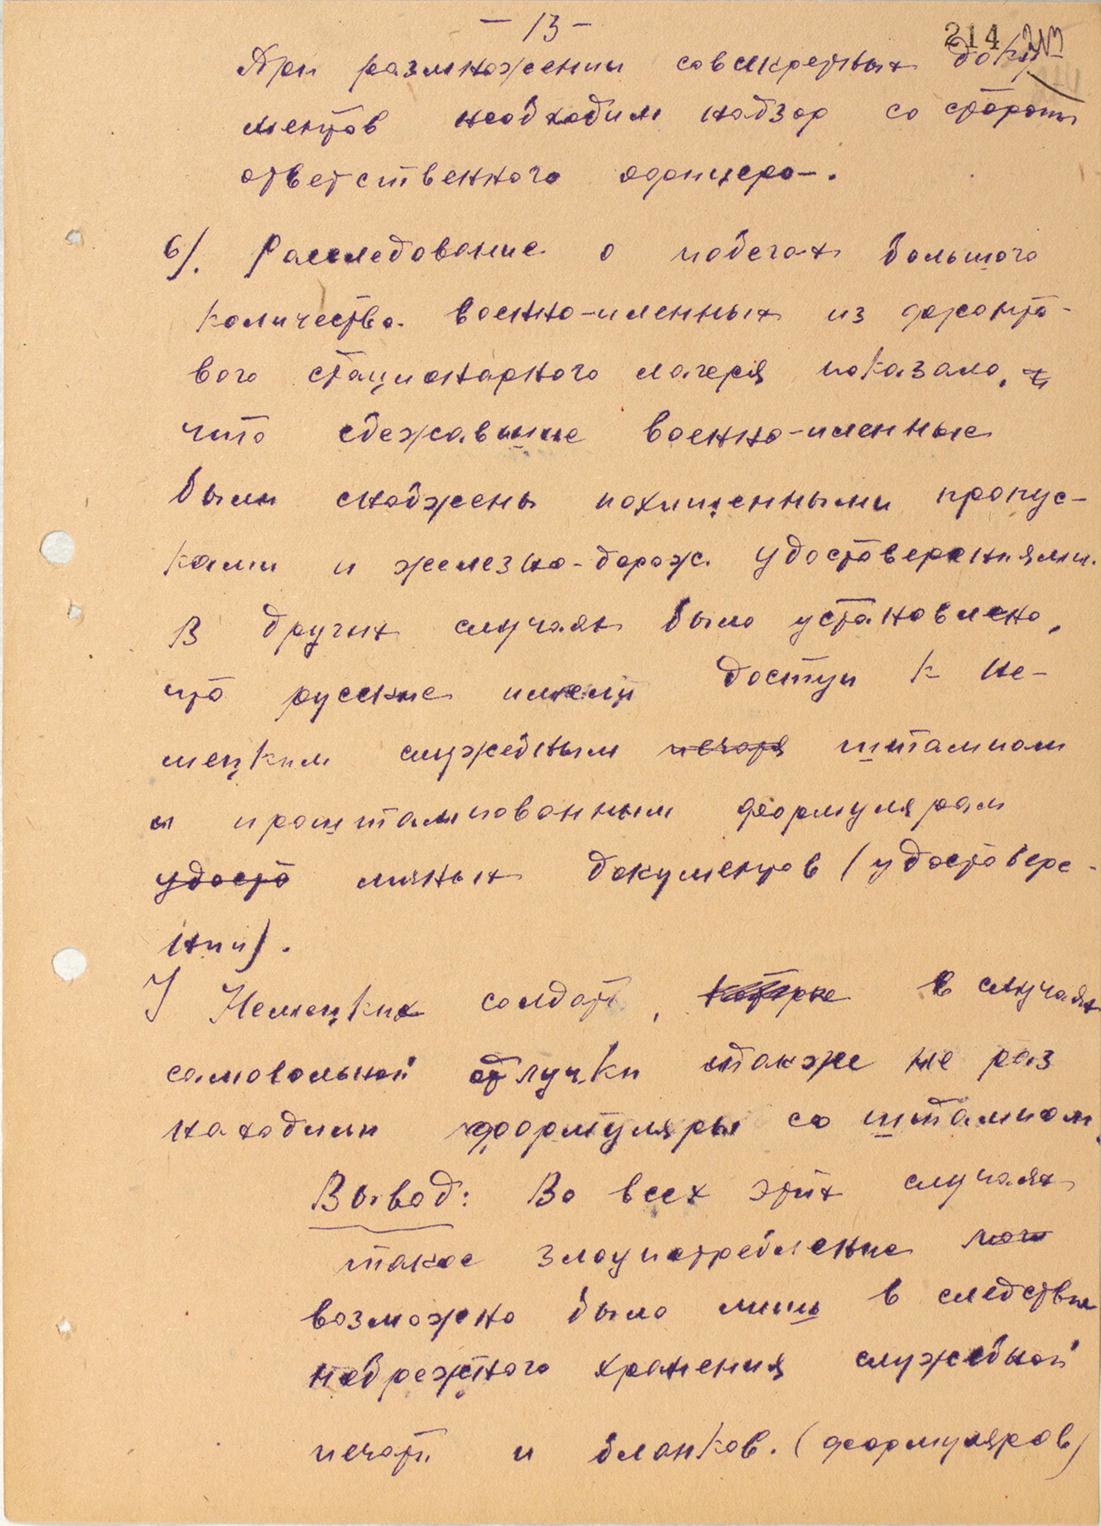 - 13 -
214
При размножении совсекретных доку-
ментов необходим надзор со стороны
ответственного офицера.
6/. Расследование о побегах большого
количества военно-пленных из фронто-
вого стационарного лагеря показало,
что сбежавшие военно-пленные
были снабжены похищенными пропус-
ками и железно-дорож. удостоверениями.
В других случаях было установлено,
что русские имели доступ к не-
мецким служебным печатя штампам
и проштампованным формулярам
удосто личных документов (удостовере-
ний).
У Немецких солдат, которые в случаях
самовольной отлучки также не раз
находили формуляры со штампом.
Вывод: Во всех этих случаях
такое злоупотребление мого
возможно было лишь в следствии
небрежного хранения служебной
печати и бланков. (формуляров)